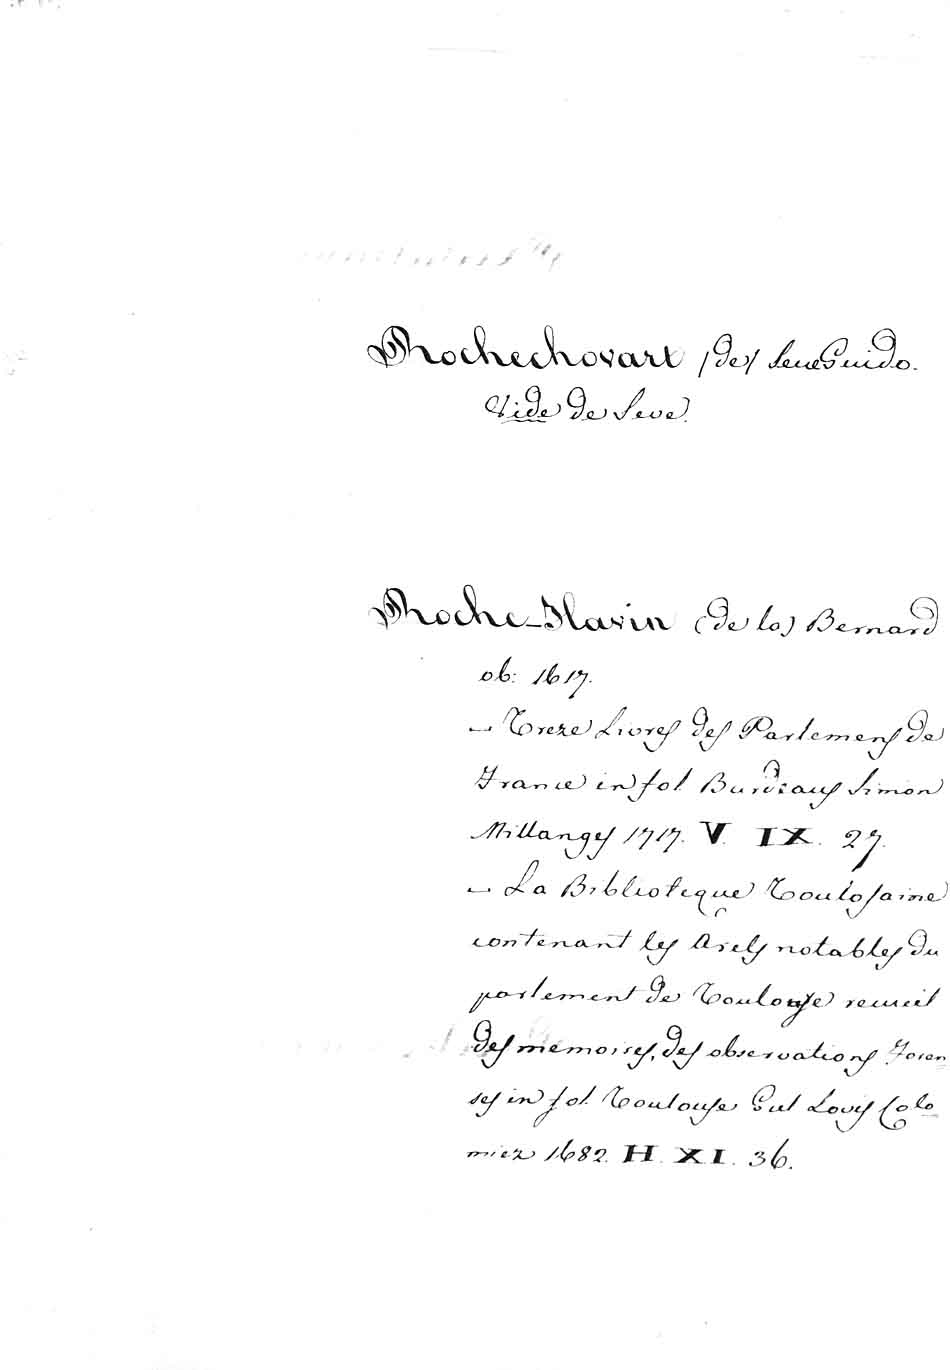 Rochechovart (de) Seve Guido.
Vide de Seve.
Roche-Flavin (de la) Bernard
ob: 1617.
— Treze Livres des Parlemens de
France in fol. Burdeaus Simon
Millanges 1717. V. IX. 27.
— La Biblioteque Toulosaine
contenant les Arets notables du
parlement de Toulouse recueil
des memoires, des observations Foren
ses in fol. Toulouse Gul Lovis Colo-
miez 1682. H. XI. 36.